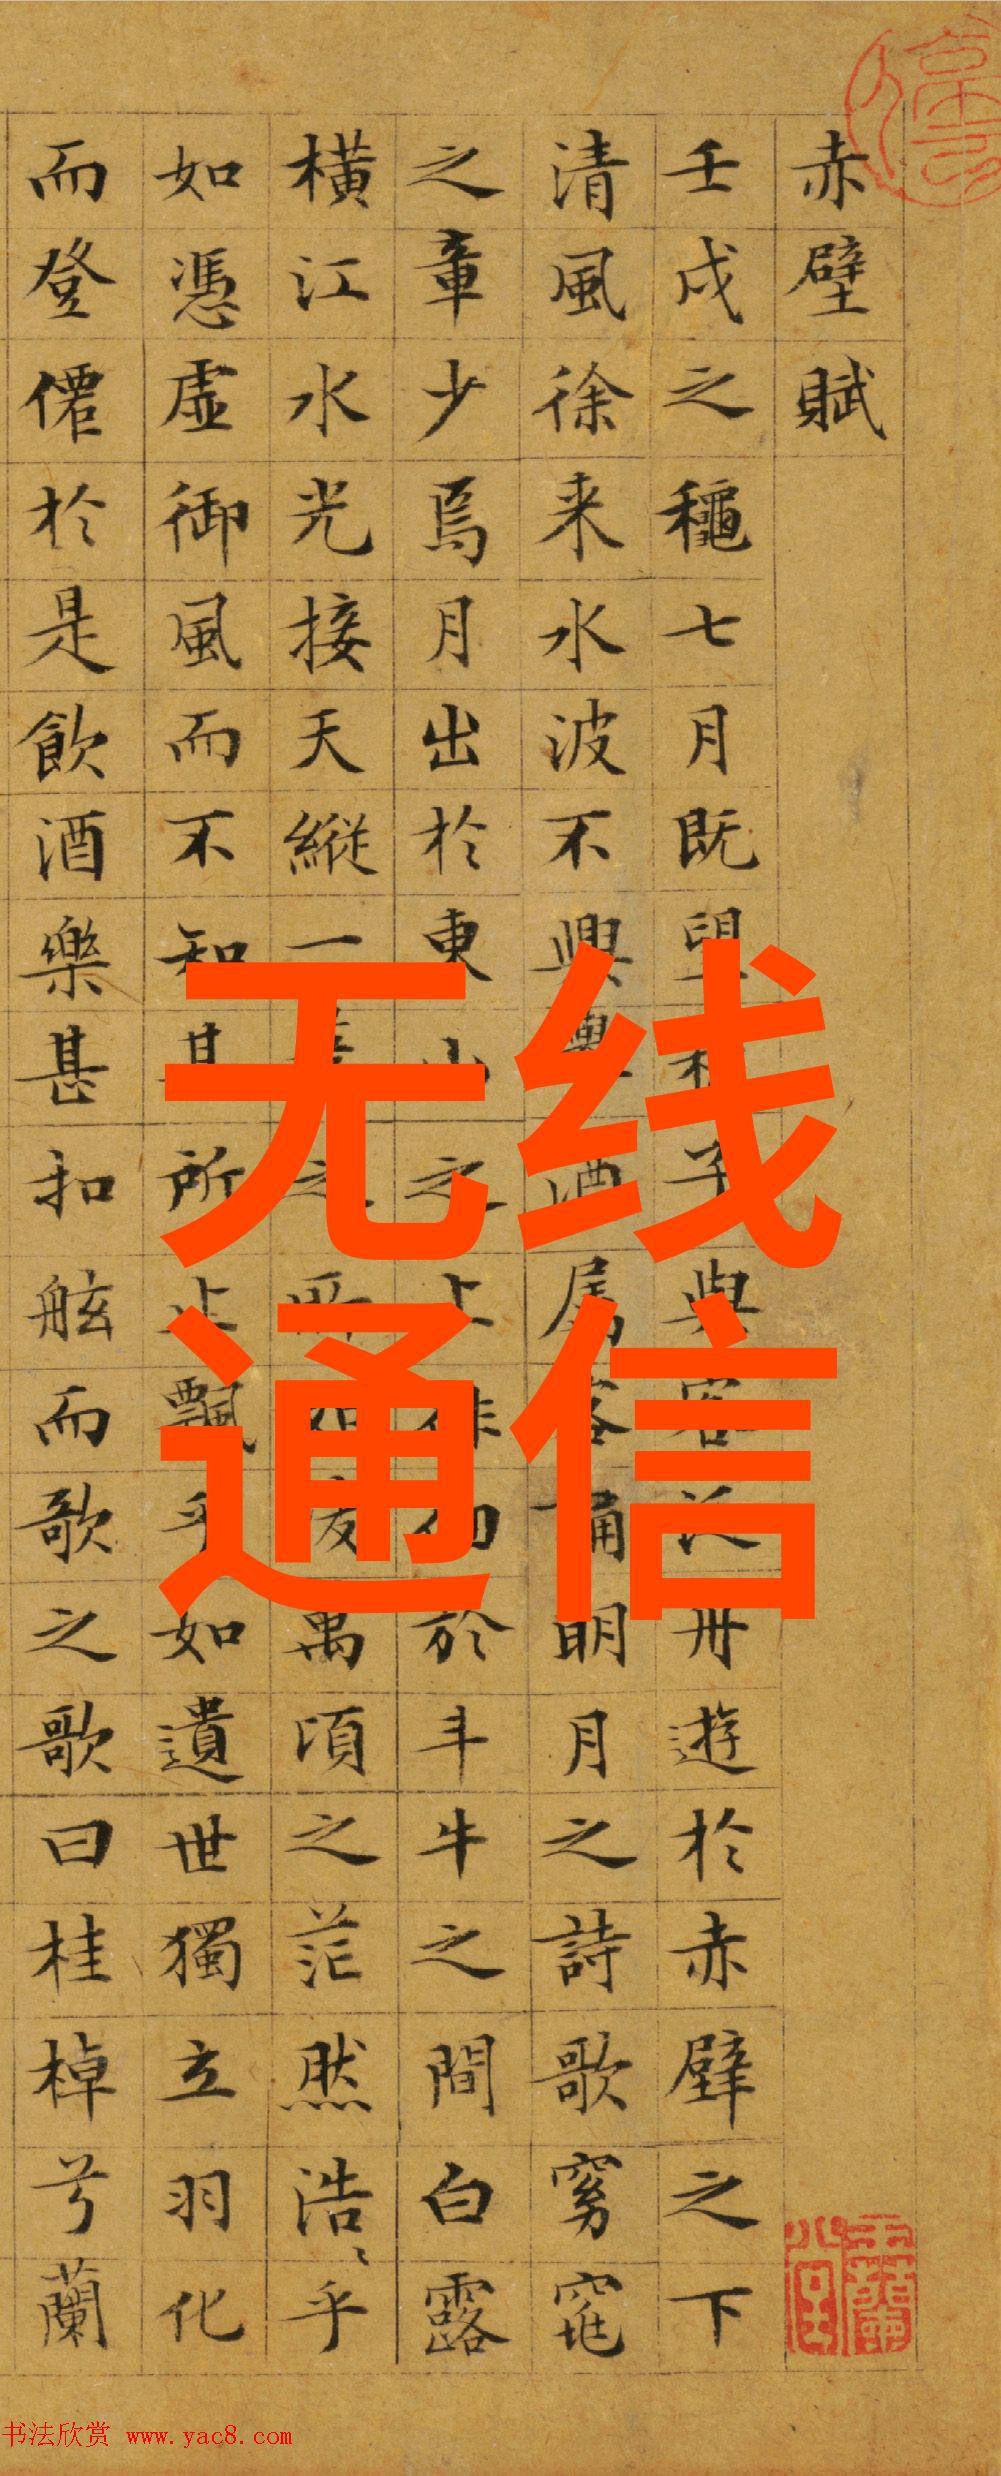 赤壁賦
壬戌之龝七月既望子與客泛舟遊於赤壁之下
清風徐来水波不興舉酒屬客誦明月之詩歌窈窕
之章少焉月出於東山之上徘徊於斗牛之間白露
横江水光接天縱一之所萬頃之茫然浩〻乎
如憑虛御風而不知其所止飄乎如遺世獨立羽化
而登僊於是飲酒樂甚扣舷而歌之歌曰桂棹兮蘭
无线
通信
书法欣赏 www.yac8.com